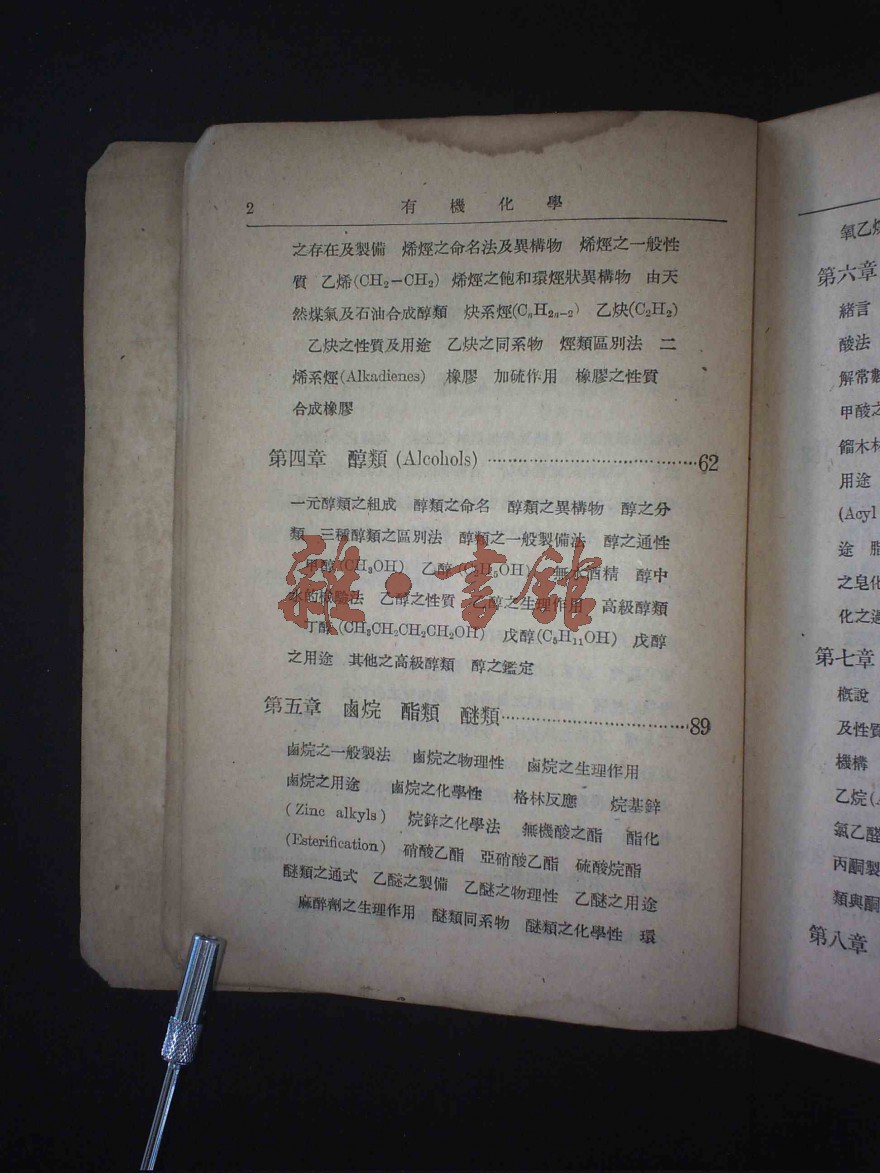 2 有機化學
之存在及製備 烯烴之命名法及異構物 烯烴之一般性
質 乙烯(CH₂－CH₂) 烯烴之飽和環烴狀異構物 由天
然煤氣及石油合成醇類 炔系烴(CₙH₂ₙ₋₂) 乙炔(C₂H₂)
乙炔之性質及用途 乙炔之同系物 烴類區別法 二
烯系烴(Alkadienes) 橡膠 加硫作用 橡膠之性質
合成橡膠
第四章 醇類 (Alcohols) ……………………………62
一元醇類之組成 醇類之命名 醇類之異構物 醇之分
類 三種醇類之區別法 醇類之一般製備法 醇之通性
甲醇(CH₃OH) 乙醇(C₂H₅OH) 無水酒精 醇中
水的檢驗法 乙醇之性質 乙醇之生理作用 高級醇類
丁醇(CH₃CH₂CH₂CH₂OH) 戊醇(C₅H₁₁OH) 戊醇
之用途 其他之高級醇類 醇之鑑定
第五章 鹵烷 酯類 醚類……………………………89
鹵烷之一般製法 鹵烷之物理性 鹵烷之生理作用
鹵烷之用途 鹵烷之化學性 格林反應 烷基鋅
(Zinc alkyls) 烷鋅之化學法 無機酸之酯 酯化
(Esterification) 硝酸乙酯 亞硝酸乙酯 硫酸烷酯
醚類之通式 乙醚之製備 乙醚之物理性 乙醚之用途
麻醉劑之生理作用 醚類同系物 醚類之化學性 環
雜·書館
氧乙烷
第六章
緒言
酸法
解常數
甲酸之
餾木材
用途
(Acyl
途 脂
之皂化
化之過
第七章
概說
及性質
機構
乙烷(A
氯乙醛
丙酮製
類與酮
第八章